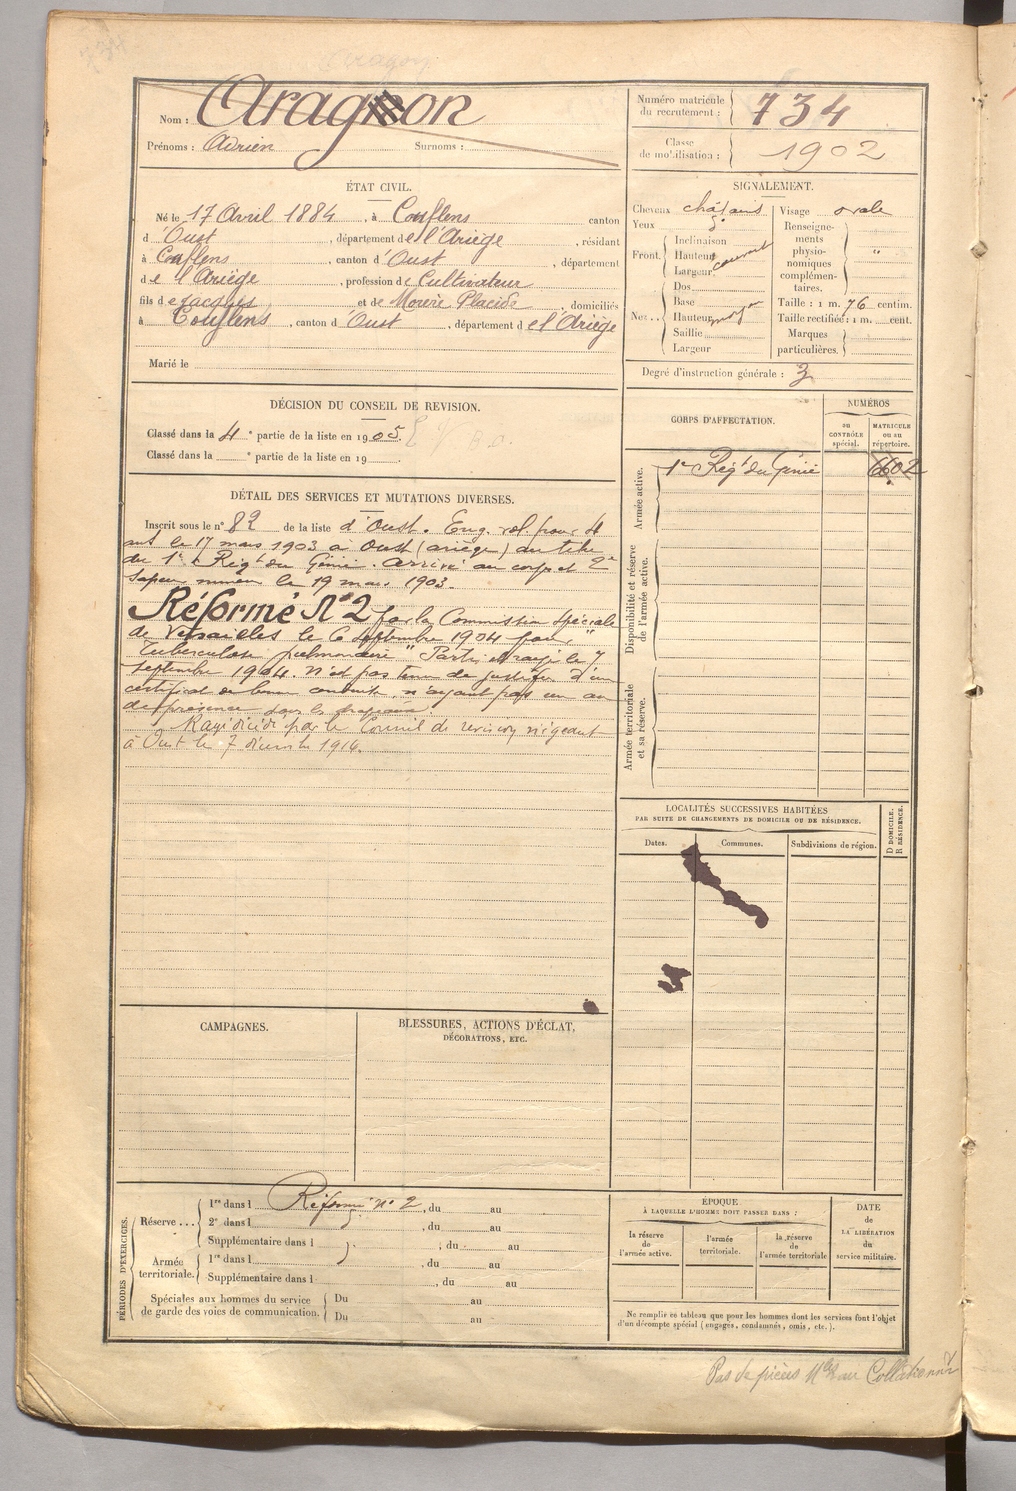 Aragon
Nom : Aragon
Prénoms : Adrien Surnoms :
Numéro matricule du recrutement : 734
Classe de mobilisation : 1902
ÉTAT CIVIL.
Né le 17 Avril 1884, à Couflens canton
d'Oust, département de l'Ariège, résidant
à Couflens, canton d'Oust, département
de l'Ariège, profession de Cultivateur
fils de Jacques et de Morère Placide, domiciliés
à Couflens, canton d'Oust, département de l'Ariège
Marié le
SIGNALEMENT.
Cheveux châtains
Yeux
Front. Inclinaison
Hauteur couvert
Largeur
Nez. Dos
Base
Hauteur moyen
Saillie
Largeur
Visage ovale
Renseignements physionomiques complémentaires. "
Taille : 1 m. 76 centim.
Taille rectifiée : 1 m. cent.
Marques particulières.
Degré d'instruction générale : 3
DÉCISION DU CONSEIL DE REVISION.
Classé dans la 4e partie de la liste en 1905.
Classé dans la e partie de la liste en 19 .
DÉTAIL DES SERVICES ET MUTATIONS DIVERSES.
Inscrit sous le n° 82 de la liste d'Oust. Eng. vol. pour 4
ans le 17 mars 1903 à Oust (ariège) au titre
du 1er Régt du Génie. Arrivé au corps et 2e
Sapeur mineur le 19 mars 1903.
Réformé N°2 par la Commission Spéciale
de Versailles le 6 Septembre 1904 pour "
Tuberculose pulmonaire" Parti et rayé le 7
Septembre 1904. N'est pas tenu de justifier d'un
certificat de bonne conduite, n'ayant pas un an
de présence sous les drapeaux.
par le Conseil de revision siégeant
à Oust le 7 décembre 1914.
CORPS D'AFFECTATION.
NUMÉROS
au CONTRÔLE spécial.
MATRICULE ou au répertoire.
Armée active.
1er Régt du Génie 6602
Disponibilité et réserve de l'armée active.
Armée territoriale et sa réserve.
LOCALITÉS SUCCESSIVES HABITÉES
PAR SUITE DE CHANGEMENTS DE DOMICILE OU DE RÉSIDENCE.
Dates.
Communes.
Subdivisions de région.
D DOMICILE.
R RÉSIDENCE.
CAMPAGNES.
BLESSURES, ACTIONS D'ÉCLAT,
DÉCORATIONS, ETC.
PÉRIODES D'EXERCICES.
Réserve ... 1re dans l Réformé n° 2, du au
2e dans l , du au
Supplémentaire dans l ; du au
Armée territoriale. 1re dans l , du au
Supplémentaire dans l , du au
Spéciales aux hommes du service Du au
de garde des voies de communication. Du au
ÉPOQUE
À LAQUELLE L'HOMME DOIT PASSER DANS :
la réserve de l'armée active.
l'armée territoriale.
la réserve de l'armée territoriale
DATE de LA LIBÉRATION du service militaire.
Ne remplir ce tableau que pour les hommes dont les services font l'objet
d'un décompte spécial (engagés, condamnés, omis, etc.).
Pas de pièces